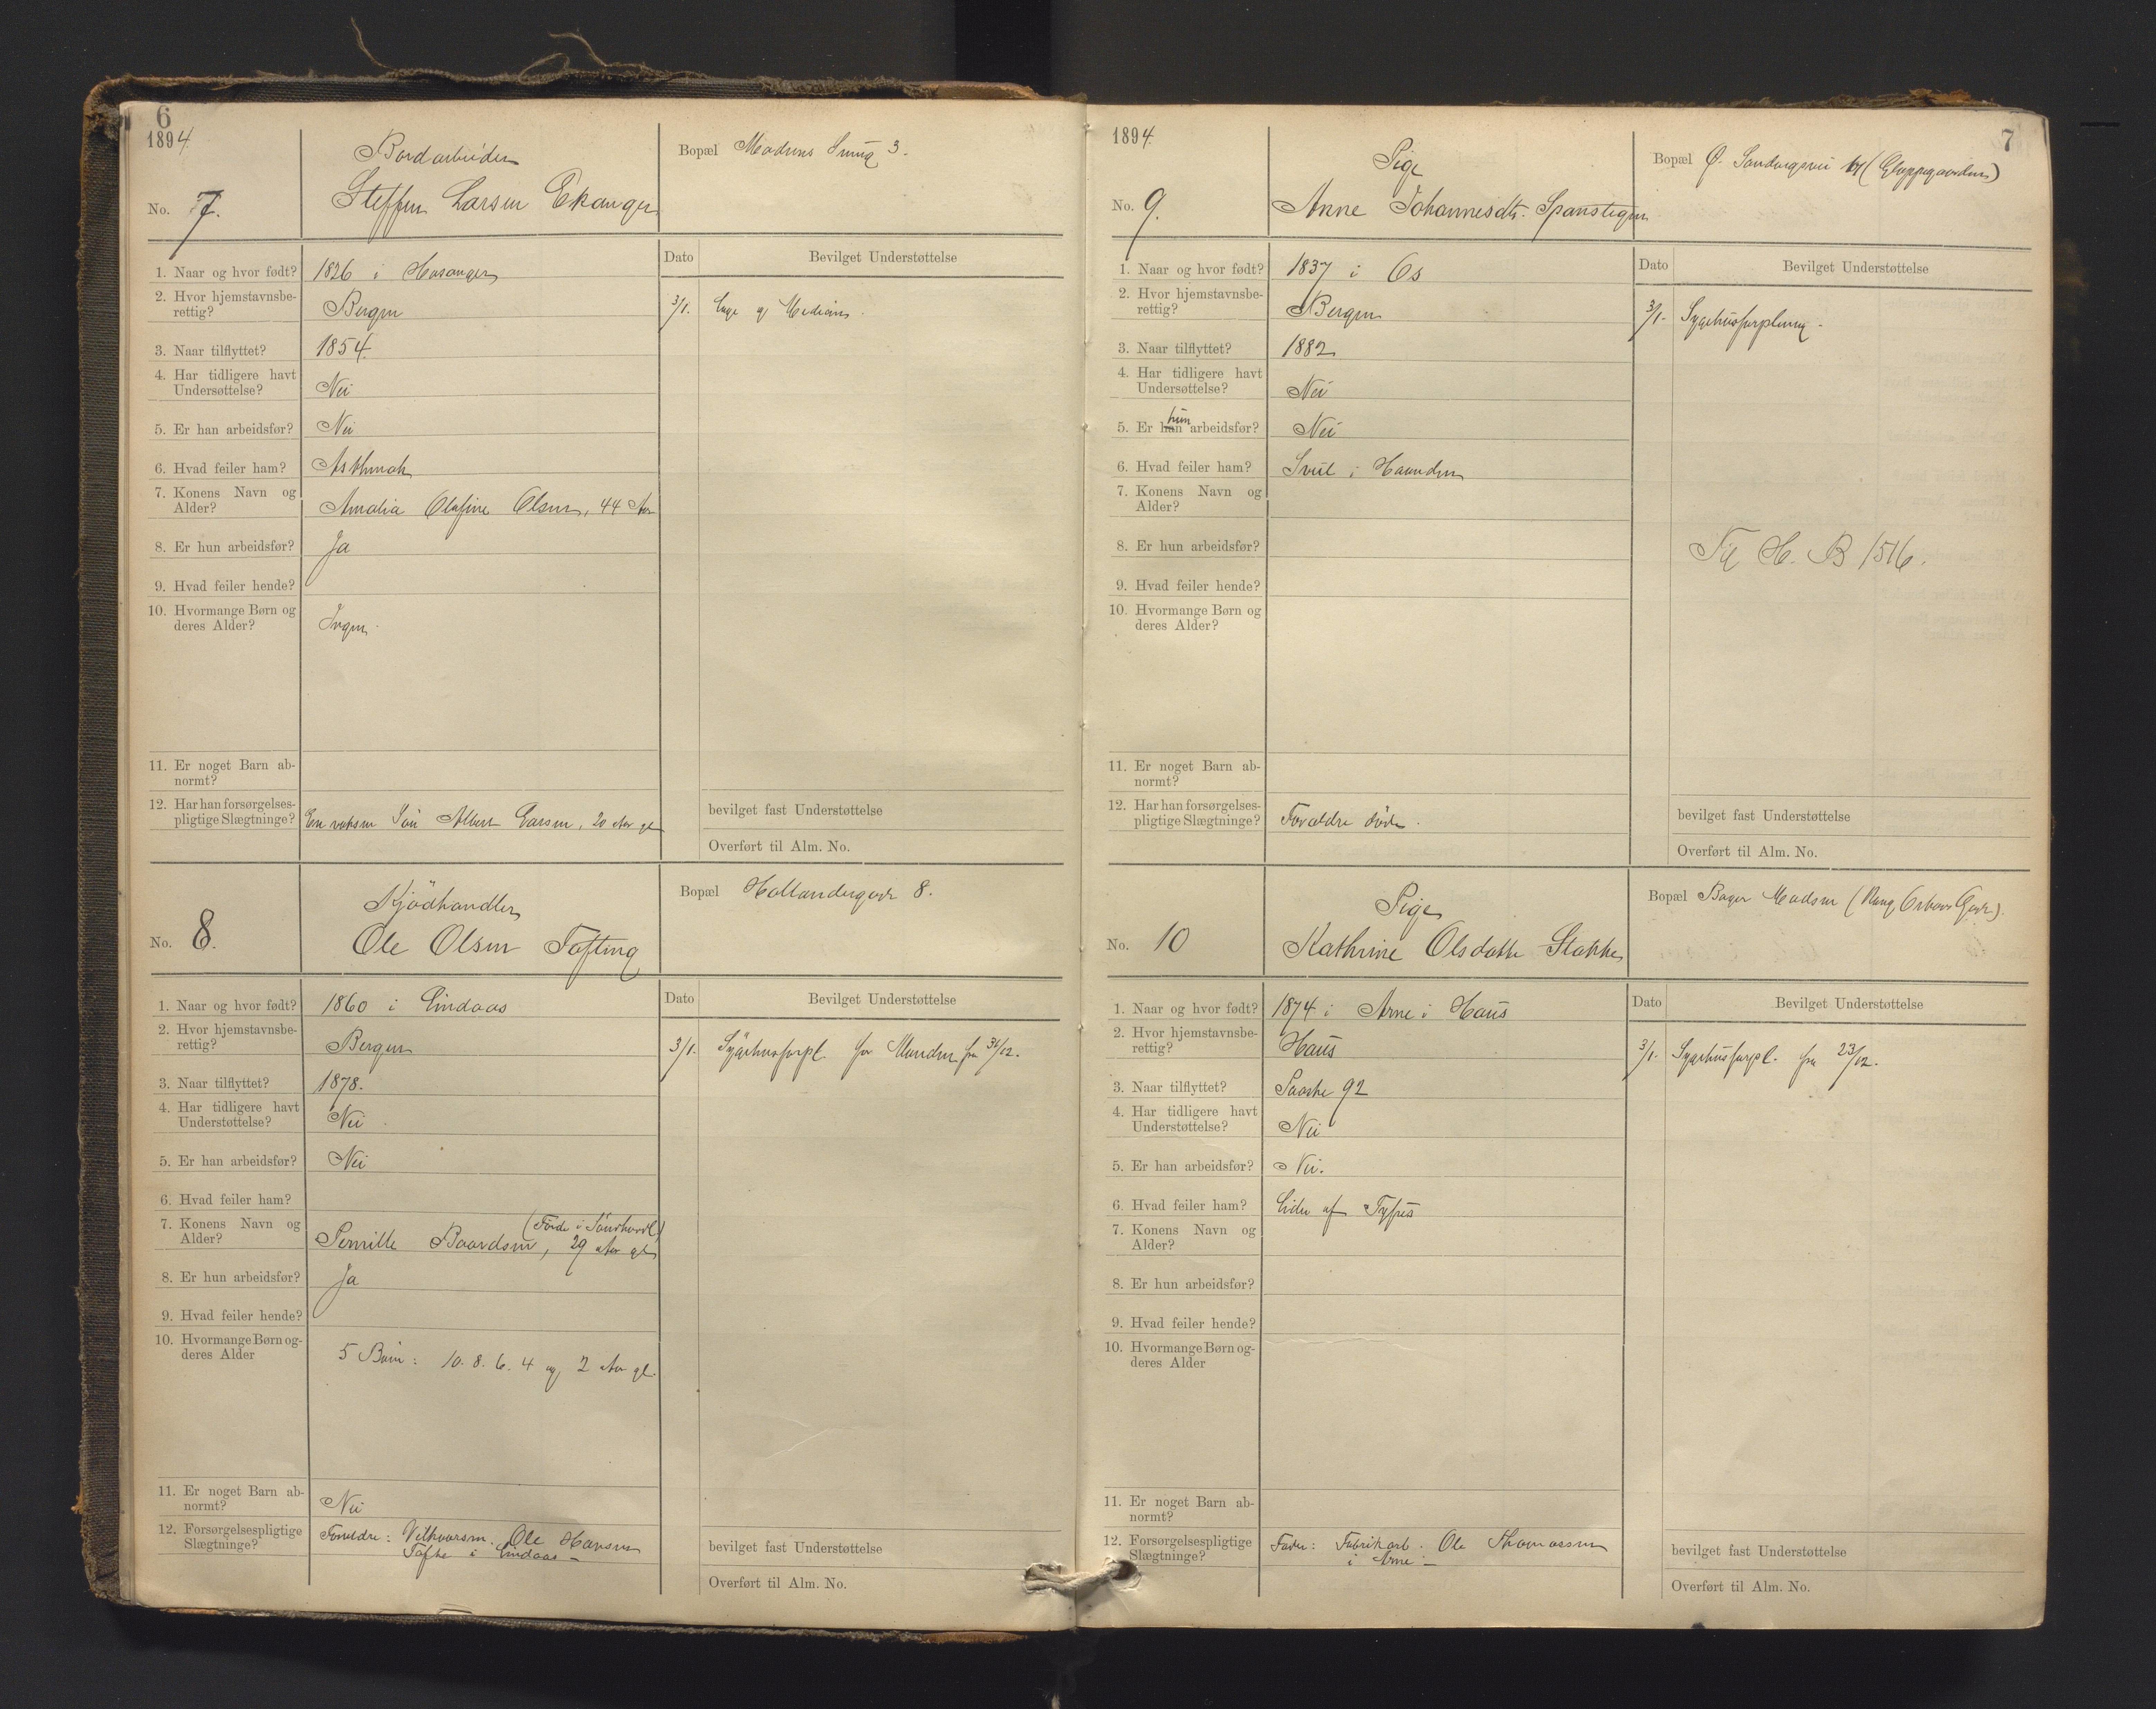 6
1894.
No. 7.
Bordarbeider
Steffen Larsen Ekanger
Bopæl Madsens Smug 3.
Dato
Bevilget Understøttelse
1. Naar og hvor født? 1826 i Hosanger
2. Hvor hjemstavnsbe-
rettig? Bergen
3/1. Læge og Medicin.
3. Naar tilflyttet? 1854.
4. Har tidligere havt
Undersøttelse? Nei
5. Er han arbeidsfør? Nei
6. Hvad feiler ham? Asthmah
7. Konens Navn og
Alder? Amalia Olafine Olsen, 44 Aar
8. Er hun arbeidsfør? Ja
9. Hvad feiler hende?
10. Hvormange Børn og
deres Alder? Ingen.
11. Er noget Barn ab-
normt?
12. Har han forsørgelses-
pligtige Slægtninge? En voksen Søn Albert Larsen, 20 Aar gl
bevilget fast Understøttelse
Overført til Alm. No.
No. 8.
Kjödhandler
Ole Olsen Tofting
Bopæl Hollendergade 8.
Dato
Bevilget Understøttelse
1. Naar og hvor født? 1860 i Lindaas
2. Hvor hjemstavnsbe-
rettig? Bergen
3/1. Sygehusforpl. for Manden fra 30/12.
3. Naar tilflyttet? 1878.
4. Har tidligere havt
Understøttelse? Nei.
5. Er han arbeidsfør? Nei
6. Hvad feiler ham?
7. Konens Navn og
Alder? Pernille Baardsen, 29 Aar gl
8. Er hun arbeidsfør? Ja
9. Hvad feiler hende?
10. Hvormange Børn og-
deres Alder 5 Børn: 10. 8. 6. 4 og 2 Aar gl.
11. Er noget Barn ab-
normt? Nei
12. Forsørgelsespligtige
Slægtninge? Forældre: Ole Hansen
i Lindaas –
bevilget fast Understøttelse
Overført til Alm. No.
7
1894.
No. 9.
Pige
Anne Johannesdtr. Spanstigen
Bopæl Ø. Sandvigsvei
Dato
Bevilget Understøttelse
1. Naar og hvor født? 1837 i Os
2. Hvor hjemstavnsbe-
rettig? Bergen
3/1. Sygehusforpleining.
3. Naar tilflyttet? 1882
4. Har tidligere havt
Undersøttelse? Nei
5. Er han hun arbeidsfør? Nei
6. Hvad feiler ham? Svul i Haanden
7. Konens Navn og
Alder?
8. Er hun arbeidsfør?
H. B 1516.
9. Hvad feiler hende?
10. Hvormange Børn og
deres Alder?
11. Er noget Barn ab-
normt?
12. Har han forsørgelses-
pligtige Slægtninge? Forældre døde.
bevilget fast Understøttelse
Overført til Alm. No.
No. 10
Pige
Kathrine Olsdatter Stakke
Bopæl Bager Madsen
Dato
Bevilget Understøttelse
1. Naar og hvor født? 1874 i Arne i Haus
2. Hvor hjemstavnsbe-
rettig? Haus
3/1. Sygehusforpl. fra 23/12.
3. Naar tilflyttet? Paaske 92
4. Har tidligere havt
Understøttelse? Nei
5. Er han arbeidsfør? Nei.
6. Hvad feiler ham? Lider af Tyfus
7. Konens Navn og
Alder?
8. Er hun arbeidsfør?
9. Hvad feiler hende?
10. Hvormange Børn og-
deres Alder
11. Er noget Barn ab-
normt?
12. Forsørgelsespligtige
Slægtninge? Fader: Fabrikarb. Ole Thomassen
i Arne –
bevilget fast Understøttelse
Overført til Alm. No.